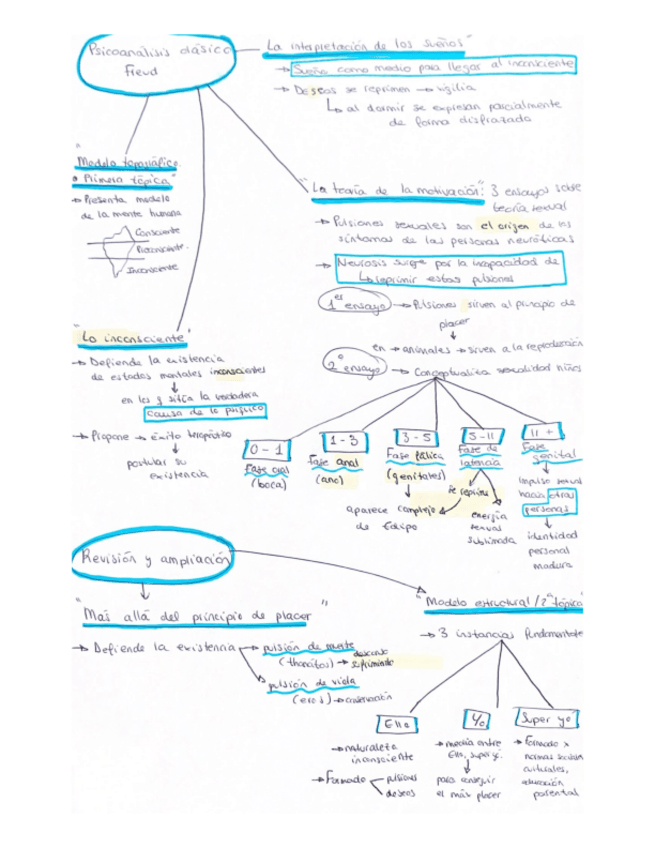 Psicoanálisis clásico
Freud
"La interpretación de los sueños"
→ Sueño como medio para llegar al inconsciente
→ Deseos se reprimen → vigilia
↳ al dormir se expresan parcialmente
de forma disfrazada
"Modelo topográfico
o Primera tópica"
→ Presenta modelo
de la mente humana
Consciente
Preconsciente.
Inconsciente
"La teoría de la motivación": 3 ensayos sobre
teoría sexual
→ Pulsiones sexuales son el origen de los
síntomas de las personas neuróticas
→ Neurosis surge por la incapacidad de
↳ reprimir estas pulsiones
1er ensayo → Pulsiones sirven al principio de
placer
↓
en → animales → sirven a la reproducción
2º ensayo → Conceptualiza sexualidad niños
"Lo inconsciente"
→ Defiende la existencia
de estados mentales inconscientes
↓
en los q sitúa la verdadera
causa de lo psíquico
→ Propone → éxito terapéutico
↓
postular su
existencia
0 - 1
Fase oral
(boca)
1 - 3
Fase anal
(ano)
3 - 5
Fase fálica
(genitales)
↓
aparece complejo
de Edipo
5-11
Fase de
latencia
se reprime
energía
sexual
sublimada
11 +
Fase
genital
↓
impulso sexual
hacia otras
personas
↓
identidad
personal
madura
Revisión y ampliación
↓
"Más allá del principio de placer"
→ Defiende la existencia
→ pulsión de muerte
(thanatos) → descanso
suprimiendo
→ pulsión de vida
(eros) → conservación
"Modelo estructural/2ª tópica"
→ 3 instancias fundamentale
Ello
→ naturaleza
inconsciente
→ Formado
pulsiones
deseos
Yo
→ media entre
Ello, super yo.
↓
para conseguir
el máx placer
Super yo
→ Formado x
normas sociales
culturales,
educación
parental